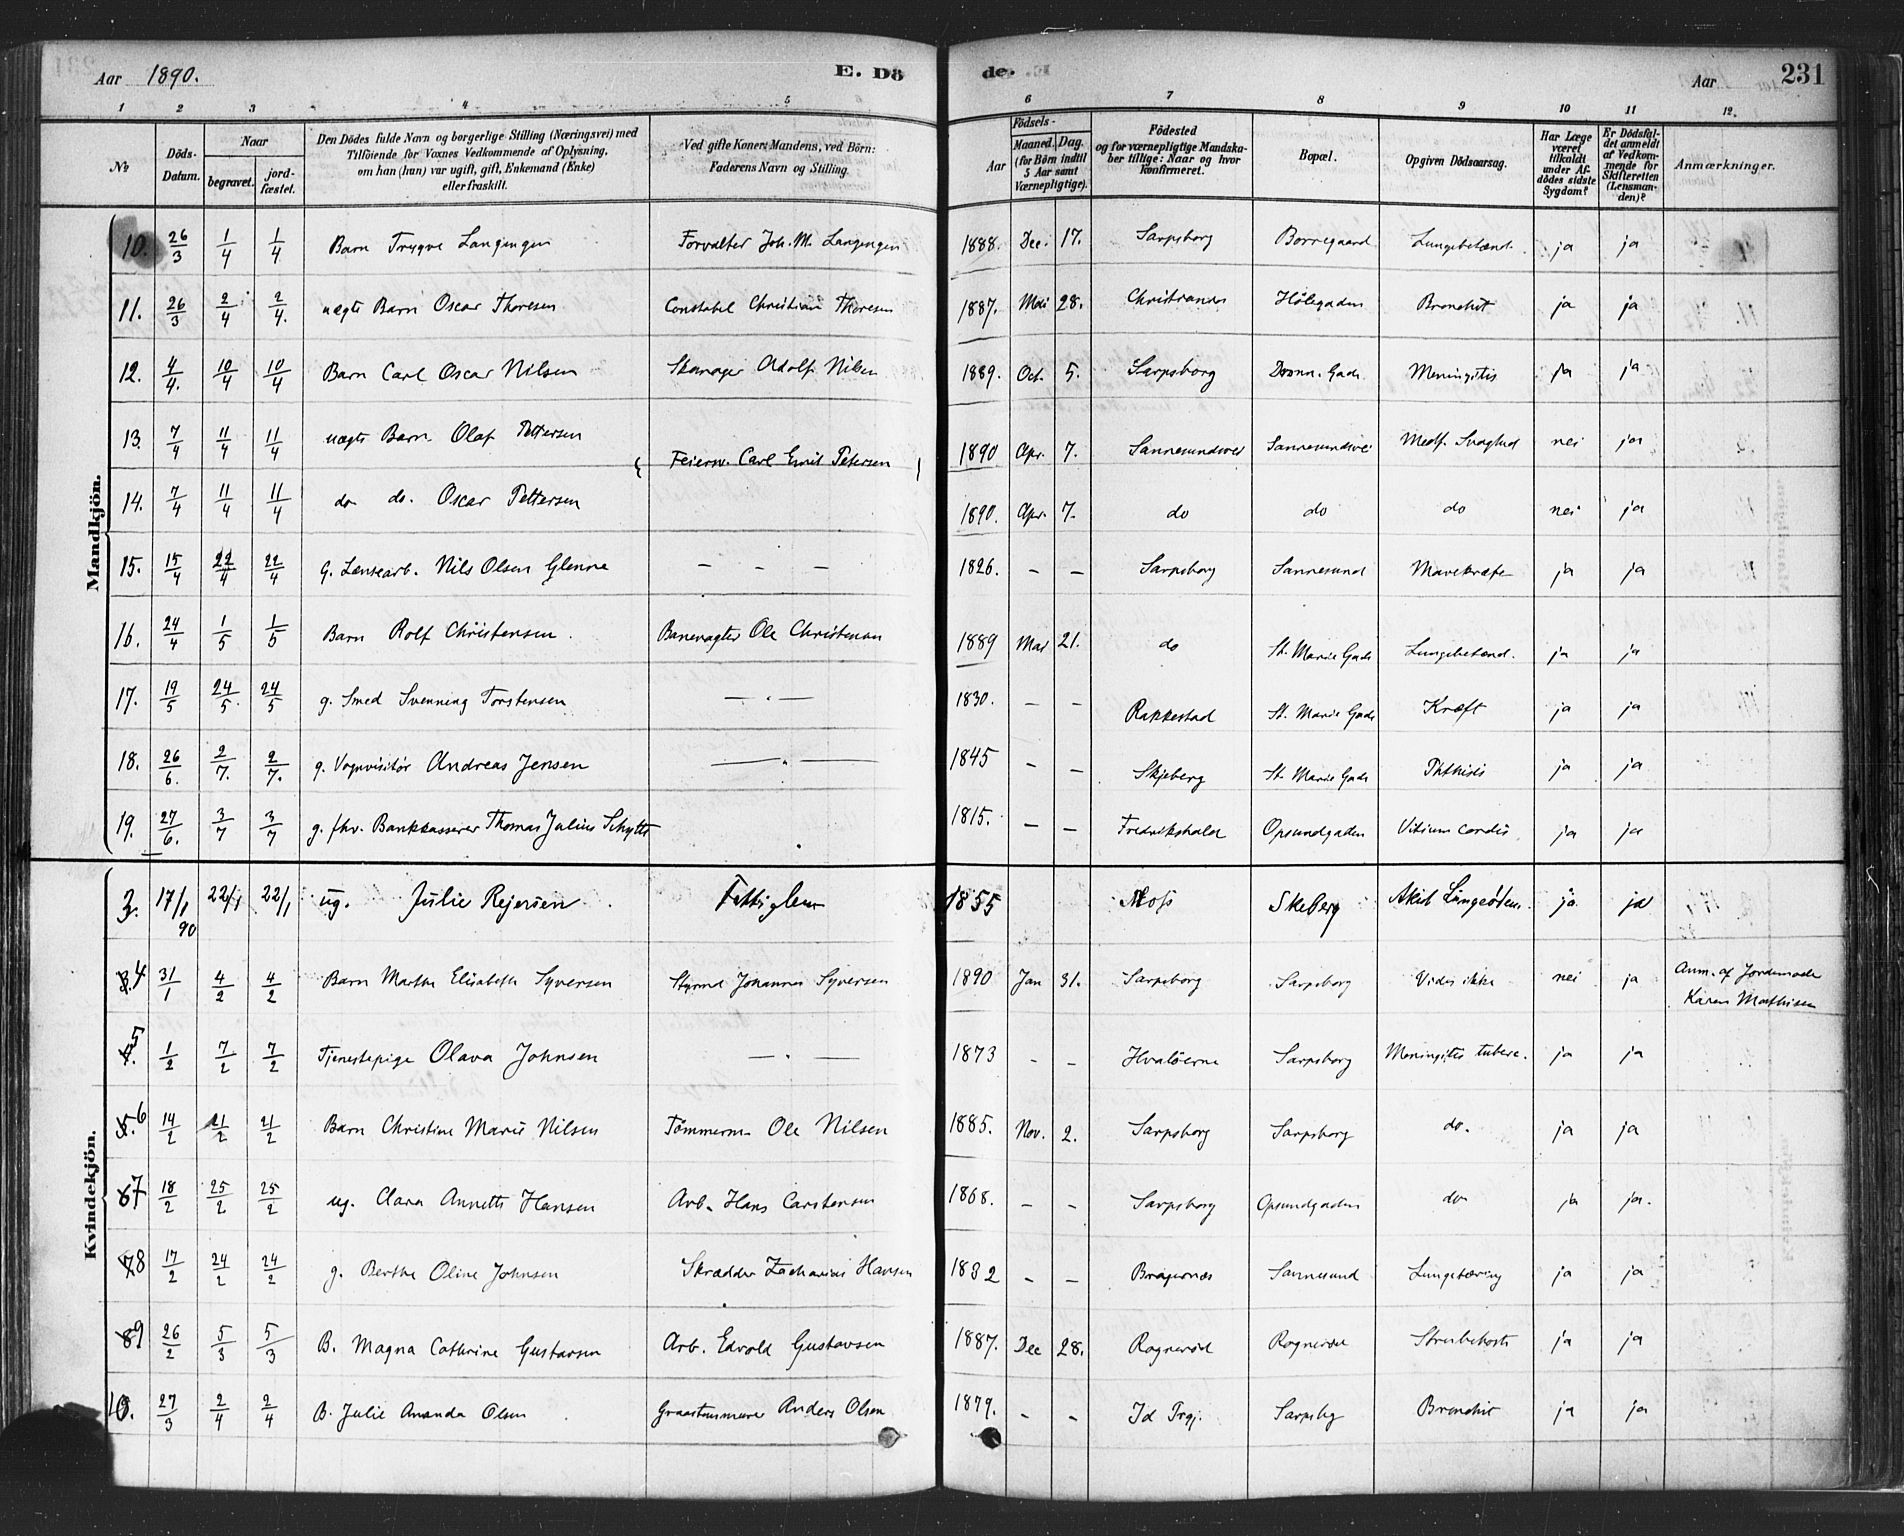 Aar 1890. E. Dö
de. Aar 231
1 2 3 4 5 6 7 8 9 10 11 12.
No Döds-Datum. Naar begravet. jordfæstet. Den Dödes fulde Navn og borgerlige Stilling (Næringsvei) med Tilföiende for Voxnes Vedkommende af Oplysning, om han (hun) var ugift, gift, Enkemand (Enke) eller fraskilt. Ved gifte Koner: Mandens, ved Börn: Faderens Navn og Stilling. Födsels- Aar Maaned. Dag. (for Börn indtil 5 Aar samt Værnepligtige). Födested og for værnepligtige Mandskaber tillige: Naar og hvor konfirmeret. Bopæl. Opgiven Dödsaarsag. Har Læge været tilkaldt under Afdödes sidste Sygdom? Er Dödsfaldet anmeldt af Vedkommende for Skifteretten (Lensmanden)? Anmærkninger.
Mandkjön.
10. 26/3 1/4 1/4 Barn Trygve Langengen Forvalter Joh. M. Langengen 1888. Dec. 17. Sarpsborg Borregaard Lungebetænd. ja ja
11. 26/3 2/4 2/4. uægte Barn Oscar Thoresen Constabel Christian Thoresen 1887. Mai 28. Christiansds Hölegaden Bronchit ja ja
12. 4/4. 10/4 10/4 Barn Carl Oscar Nilsen Skomager Adolf Nilsen 1889. Oct. 5. Sarpsborg Dronn. Gade Meningitis ja ja
13. 7/4 11/4 11/4 uægte Barn Olaf Pettersen Feiersv. Carl Emil Petersen 1890 Apr. 7. Sannesundsvei Sannesundsvei Medf. Svaghed nei ja
14. 7/4 11/4 11/4 do do. Oscar Pettersen 1890. Apr. 7. do do do nei ja
15. 15/4 22/4 22/4 g. Lænsearb. Nils Olsen Glenne – – – 1826. – – Sarpsborg Sannesund Mavekræft ja ja
16. 24/4 1/5 1/5 Barn Rolf Christensen. Banevogter Ole Christensen 1889 Mar 21. do St. Marie Gade Lungebetænd. ja ja
17. 19/5 24/5. 24/5 g. Smed Svenning Torstensen – " – 1830. – – Rakkestad St. Marie Gade Kræft ja ja
18. 26/6. 2/7. 2/7. g. Vognvisitör Andreas Jensen – " – 1845 – – Skjeberg St. Marie Gade Phthisis ja ja
19. 27/6. 3/7 3/7 g. fhv. Bankkasserer Thomas Julius Schytte 1815. – – Fredrikshald Opsundgaden Vitium cordis ja ja
Kvindekjön.
3. 17/1 90 22/1 22/1 ug. Julie Rejersen Fattiglem 1855 Moss Skeberg Akut Lungeödem. ja ja
3. 4 31/1 4/2 4/2 Barn Marthe Elisabeth Syversen Styrmd Johannes Syversen 1890 Jan 31. Sarpsborg Sarpsborg Vides ikke nei ja Anm. af Jordemoder
Karen Mathisen
4. 5 1/2 7/2 7/2 Tjenestepige Olava Johnsen – " – 1873 – – Hvalöerne Sarpsborg Meningites tuberc. ja ja
5. 6 14/2 21/2 21/2 Barn Christine Marie Nilsen Tömmerm. Ole Nilsen 1885. Nov. 2. Sarpsborg Sarpsborg do. ja ja
6 7 18/2 25/2 25/2 ug. Clara Annette Hansen Arb. Hans Carstensen 1868. – – Sarpsborg Opsundgaden do ja ja.
7 8 17/2 24/2 24/2 g. Berthe Oline Johnsen Skrædder Zacharias Hansen 1832 – – Bragernæs Sannesund Lungetæring ja ja
8 9 26/2 5/3 5/3 B. Magna Cathrine Gustavsen Arb. Edvold Gustavsen 1887. Dec 28. Rognerød Rognerød Strubehoste ja ja
10. 27/3 2/4 2/4 B. Julie Amanda Olsen Graastensmurer Anders Olsen 1879. – – Id Prgj. Sarpsbg Bronchit ja ja